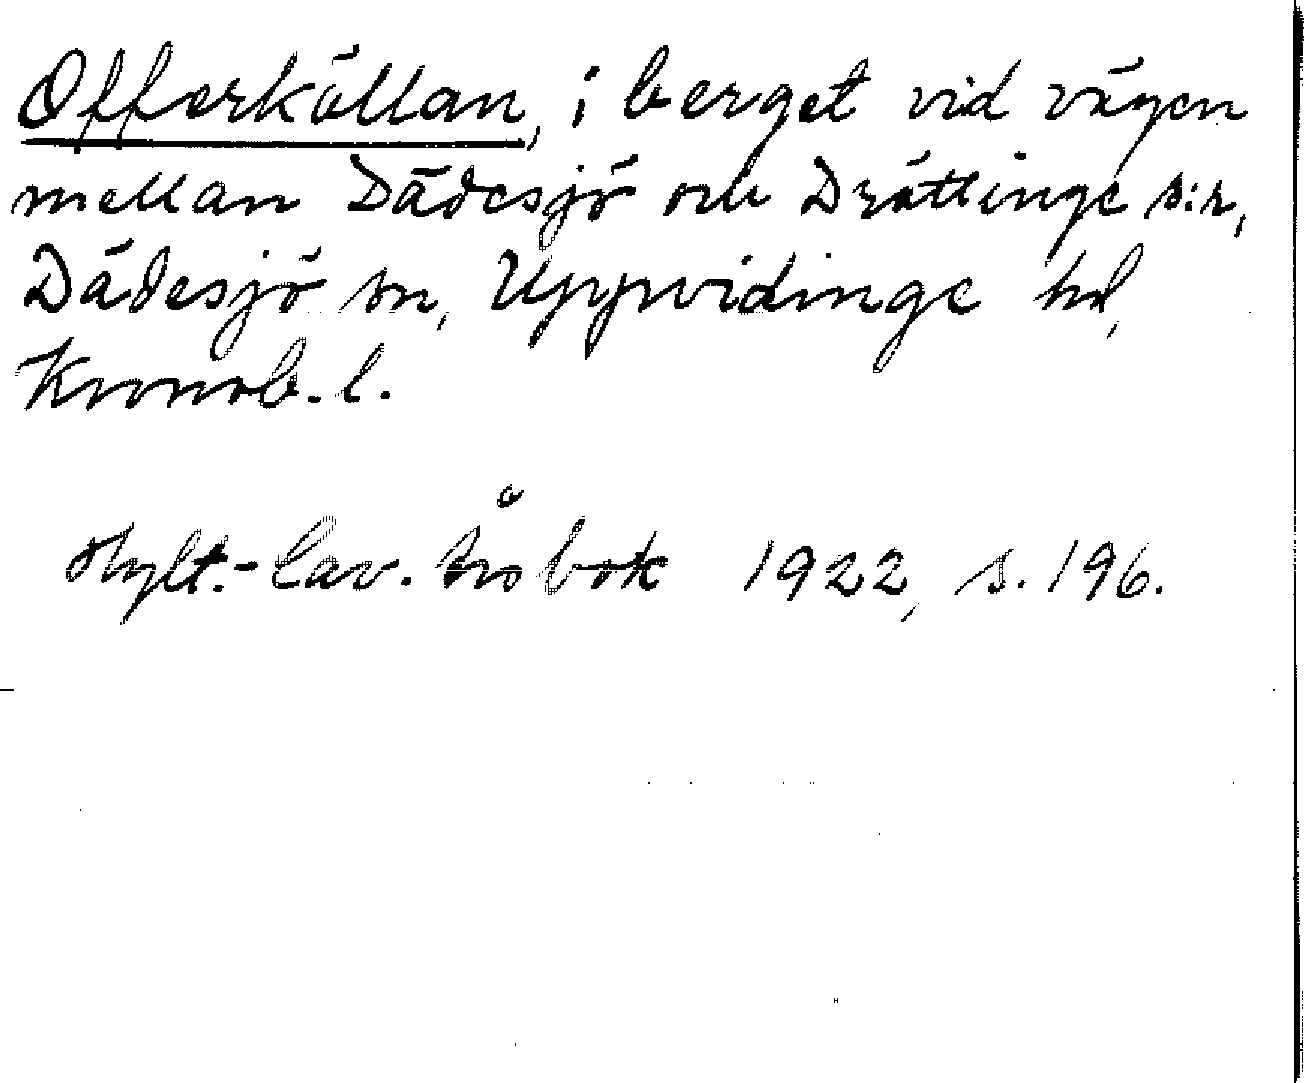 Offerkällan, i berget vid vägen
mellan Dädesjö och Drättinge s:r,
Dädesjö sn, Uppvidinge hd,
Kronob. l.
Hylt.-Cav. årsbok 1922, s. 196.